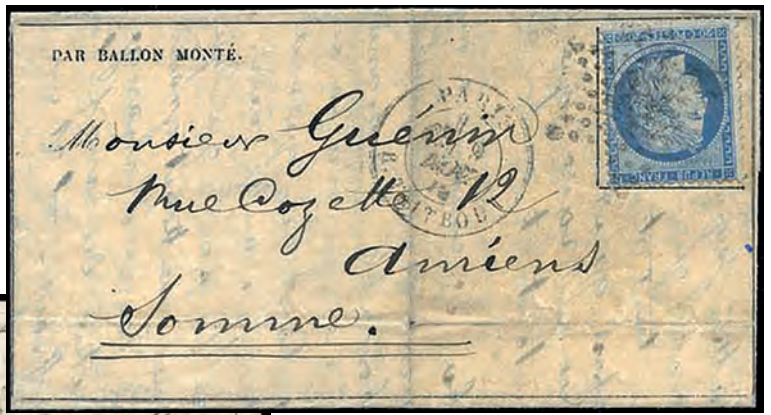 PAR BALLON MONTÉ.
PARIS
Monsieur Guénin
Rue Cozette 12
Amiens
Somme.
REPUB FRANC